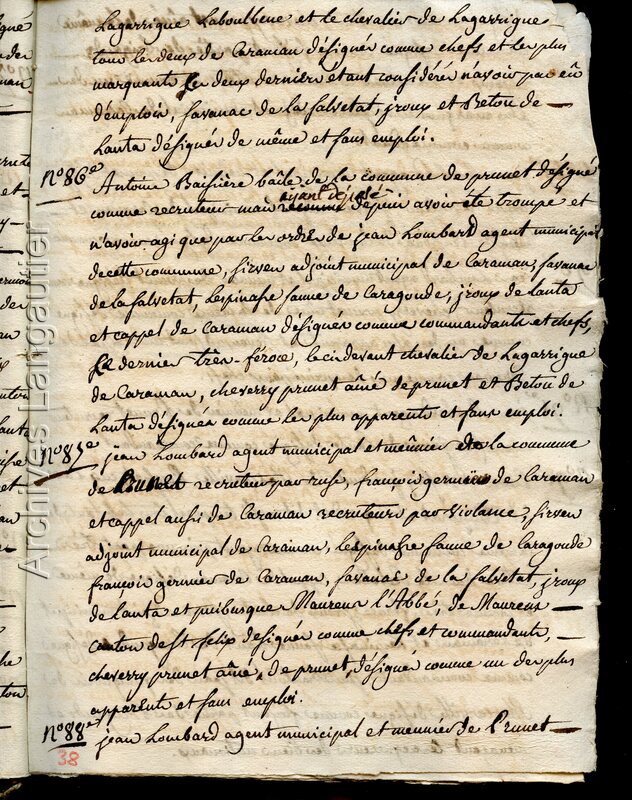 Lagarrigue Laboulbene et le chevalier de Lagarrigue
tous les deux de Caraman désignés comme chefs et les plus
marquants les deux derniers étant considérés n'avoir pas eû
d'emplois, Savanac de la Salvetat, jroux et Betou de
Lanta désignés de même et sans emploi.
N°. 86e
Antoine Baissière baîle de la commune de prunet désigné
comme recruteur mais ayant déposé depuis avoir été trompé et
n'avoir agi que par les ordres de jean Lombard agent municipal
de cette commune, Sirven adjoint municipal de Caraman, Savanac
de la Salvetat, Lespinasse fanne de Caragonde, jroux de Lanta
et Cappel de Caraman désignés comme commandants et chefs,
le dernier très-féroce, le cidevant chevalier de Lagarrigue
de Caraman, cheverry prunet aîné de prunet et Betou de
Lanta désignés comme les plus apparents et sans emploi.
N°. 87e
jean Lombard agent municipal et meûnier de la commune
de Prunet recruteur par ruse, françois germier de Caraman
et Cappel aussi de Caraman recruteurs par violence, Sirven
adjoint municipal de Caraman, Lespinasse fanne de Caragonde
françois germier de Caraman, Savanac de la Salvetat, jroux
de Lanta et puibusque Maurens l'Abbé, de Maurens
canton de St felix désignés comme chefs et commandants,
cheverry prunet aîné, de prunet, désigné comme un des plus
apparents et sans emploi.
N°. 88e
jean Lombard agent municipal et meunier de Prunet
38
Archives Langautier